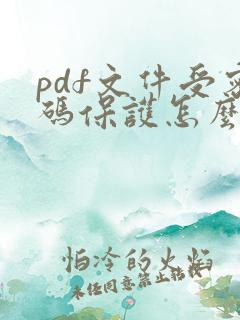 pdf文件受密
码保護怎麼
怕冷的火焰
未经同意禁止转载